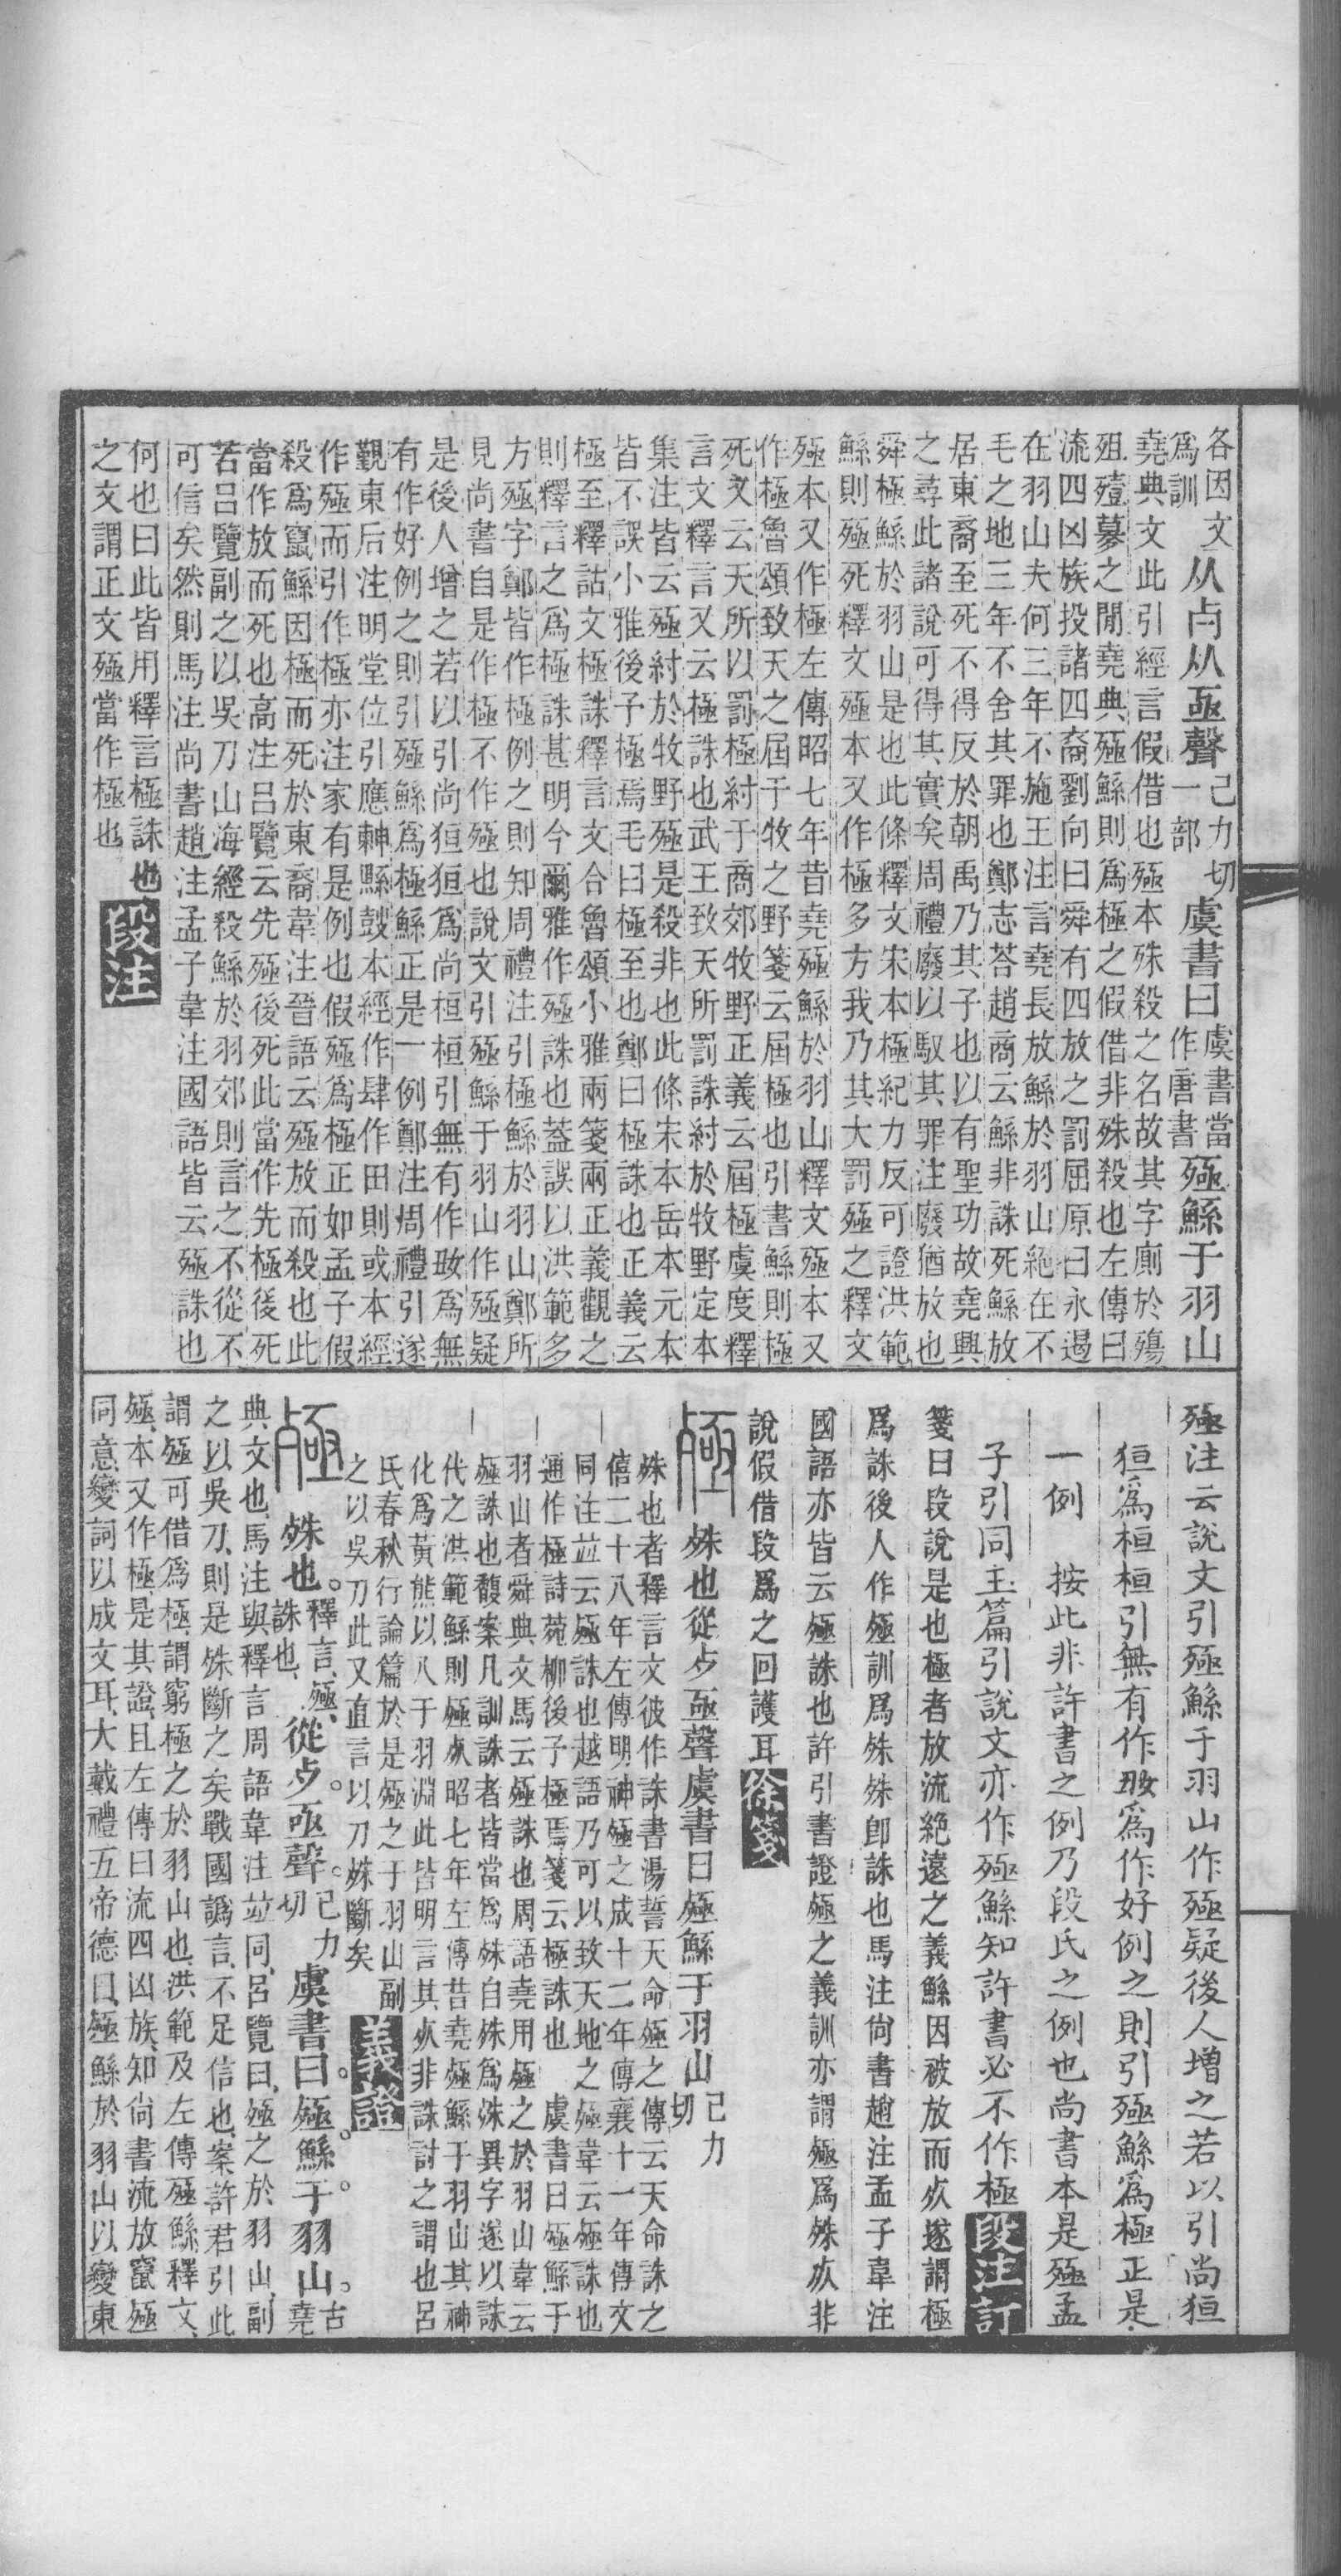 各因文
爲訓
从歺从亟聲
己力切
一部
虞書曰
虞書當
作唐書
殛鯀于羽山
堯典文此引經言假借也殛本殊殺之名故其字廁於殤
殂殪蓦之閒堯典殛鯀則爲極之假借非殊殺也左傳曰
流四凶族投諸四裔劉向曰舜有四放之罰屈原曰永遏
在羽山夫何三年不施王注言堯長放鯀於羽山絶在不
毛之地三年不舍其罪也鄭志荅趙商云鯀非誅死鯀放
居東裔至死不得反於朝禹乃其子也以有聖功故堯興
之尋此諸說可得其實矣周禮廢以馭其罪注廢猶放也
舜極鯀於羽山是也此條釋文宋本極紀力反可證洪範
鯀則殛死釋文殛本又作極多方我乃其大罰殛之釋文
殛本又作極左傳昭七年昔堯殛鯀於羽山釋文殛本又
作極魯頌致天之屆于牧之野箋云屆極也引書鯀則極
死文云天所以罰極紂于商郊牧野正義云屆極虞度釋
言文釋言又云極誅也武王致天所罰誅紂於牧野定本
集注皆云殛紂於牧野殛是殺非也此條宋本岳本元本
皆不誤小雅後子極焉毛曰極至也鄭曰極誅也正義云
極至釋詁文極誅釋言文合魯頌小雅兩箋兩正義觀之
則釋言之爲極誅甚明今爾雅作殛誅也蓋誤以洪範多
方殛字鄭皆作極例之則知周禮注引極鯀於羽山鄭所
見尚書自是作極不作殛也說文引殛鯀于羽山作殛疑
是後人增之若以引尚狟狟爲尚桓桓引無有作𡚽爲無
有作好例之則引殛鯀爲極鯀正是一例鄭注周禮引遂
覲東后注明堂位引應朄縣鼓本經作肆作田則或本經
作殛而引作極亦注家有是例也假殛爲極正如孟子假
殺爲竄鯀因極而死於東裔韋注晉語云殛放而殺也此
當作放而死也高注呂覽云先殛後死此當作先極後死
若呂覽副之以吳刀山海經殺鯀於羽郊則言之不從不
可信矣然則馬注尚書趙注孟子韋注國語皆云殛誅也
何也曰此皆用釋言極誅也
之文謂正文殛當作極也
段注
殛注云說文引殛鯀于羽山作殛疑後人增之若以引尚狟
狟爲桓桓引無有作𡚽爲作好例之則引殛鯀爲極正是
一例　按此非許書之例乃段氏之例也尚書本是殛孟
子引同玉篇引說文亦作殛鯀知許書必不作極
段注訂
箋曰段說是也極者放流絶遠之義鯀因被放而死遂謂極
爲誅後人作殛訓爲殊殊卽誅也馬注尙書趙注孟子韋注
國語亦皆云殛誅也許引書證殛之義訓亦謂殛爲殊死非
說假借段爲之回護耳
徐箋
殛
殊也從歺亟聲虞書曰殛鯀于羽山
己力
切
殊也者釋言文彼作誅書湯誓天命殛之傳云天命誅之
僖二十八年左傳明神殛之成十二年傳襄十一年傳文
同注竝云殛誅也越語乃可以致天地之殛韋云殛誅也
通作極詩菀柳後子極焉箋云極誅也　虞書曰殛鯀于
羽山者舜典文馬云殛誅也周語堯用殛之於羽山韋云
殛誅也馥案凡訓誅者皆當爲殊自殊爲殊異字遂以誅
代之洪範鯀則殛死昭七年左傳昔堯殛鯀于羽山其神
化爲黃熊以入于羽淵此皆明言其死非誅討之謂也呂
氏春秋行論篇於是殛之于羽山副
之以吳刀此又直言以刀殊斷矣
義證
殛
殊也
釋言、殛、
誅也、
從歺亟聲
己力
切
虞書曰殛鯀于羽山
古堯
典文也、馬注與釋言周語韋注竝同、呂覽曰、殛之於羽山、副
之以吳刀、則是殊斷之矣戰國譌言、不足信也、案許君引此
謂殛可借爲極、謂窮極之於羽山也、洪範及左傳殛鯀釋文、
殛、本又作極、是其證、且左傳曰流四凶族、知尙書流放竄殛
同意、變詞以成文耳、大戴禮五帝德曰、殛鯀於羽山以變東